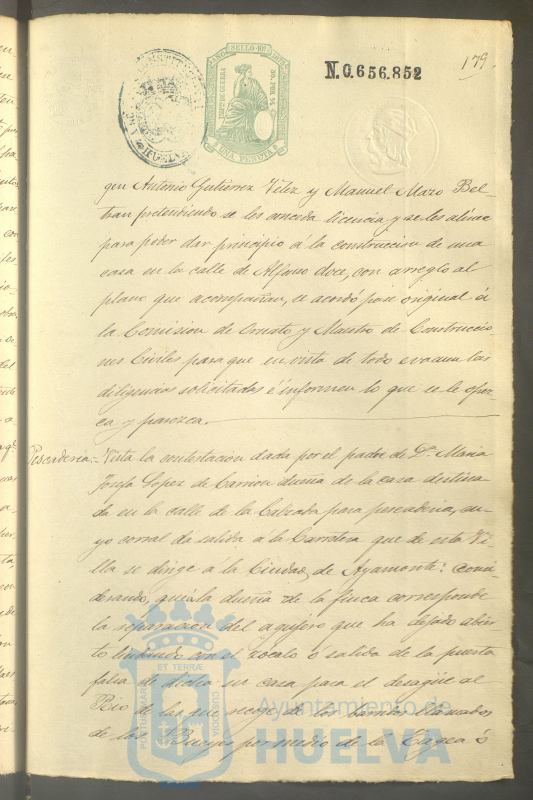 SELLO 10º
UNA PESETA
HUELVA
N.0.656.852
179.
gen Antonio Gutierrez Velez y Manuel Mazo Bel-
tran pretendiendo se les conceda licencia y se les alinee
para poder dar principio á la construccion de una
casa en la calle de Alfonso doce, con arreglo al
plano que acompañan, se acordó pase original á
la Comision de Ornato y Maestro de Construccio-
nes Civiles para que en vista de todo evacuen las
diligencias solicitadas é informen lo que se le ofrez-
ca y parezca.
Pescaderia.- Vista la contestacion dada por el padre de Dª. Maria
Josefa Lopez de Carrion dueña de la casa destina-
da en la calle de la Calzada para pescaderia, cu-
yo corral da salida á la Carretera que de esta Vi-
lla se dirige á la Ciudad de Ayamonte: Consi-
derando, que á la dueña de la finca corresponde
la reparacion del agujero que ha dejado abier-
to lindando con el zócalo ó salida de la puerta
falsa de dicha su casa para el desagüe al
Rio de las que recoge de los llamados
de los por medio de la ó
PORTUS MARIS ET TERRÆ CUSTODIA
Ayuntamiento de
HUELVA